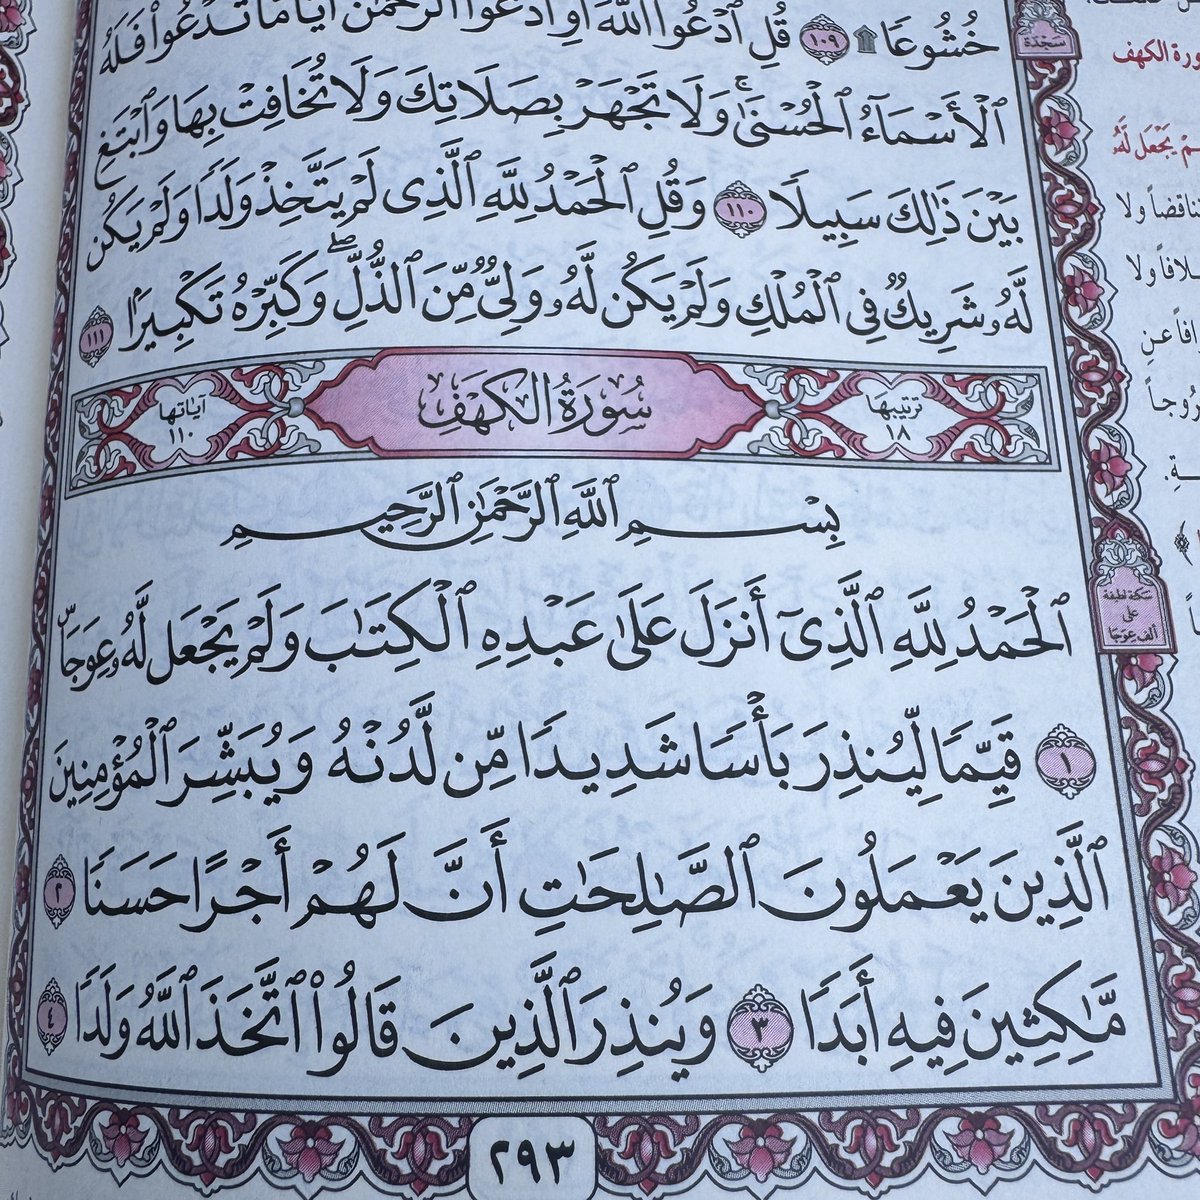 خُشُوعًا ۩ ١٠٩ قُلِ ٱدْعُوا۟ ٱللَّهَ أَوِ ٱدْعُوا۟ ٱلرَّحْمَٰنَ أَيًّا مَّا تَدْعُوا۟ فَلَهُ
سَجْدَة
ٱلْأَسْمَآءُ ٱلْحُسْنَىٰ ۚ وَلَا تَجْهَرْ بِصَلَاتِكَ وَلَا تُخَافِتْ بِهَا وَٱبْتَغِ
بَيْنَ ذَٰلِكَ سَبِيلًا ١١٠ وَقُلِ ٱلْحَمْدُ لِلَّهِ ٱلَّذِى لَمْ يَتَّخِذْ وَلَدًا وَلَمْ يَكُن
لَّهُۥ شَرِيكٌ فِى ٱلْمُلْكِ وَلَمْ يَكُن لَّهُۥ وَلِىٌّ مِّنَ ٱلذُّلِّ ۖ وَكَبِّرْهُ تَكْبِيرًۢا ١١١
ترتيبها ١٨
سُورَةُ الكَهْفِ
آياتها ١١٠
بِسْمِ ٱللَّهِ ٱلرَّحْمَٰنِ ٱلرَّحِيمِ
ٱلْحَمْدُ لِلَّهِ ٱلَّذِىٓ أَنزَلَ عَلَىٰ عَبْدِهِ ٱلْكِتَٰبَ وَلَمْ يَجْعَل لَّهُۥ عِوَجَاۜ
سكتة لطيفة
على
ألف عِوَجَا
١ قَيِّمًا لِّيُنذِرَ بَأْسًا شَدِيدًا مِّن لَّدُنْهُ وَيُبَشِّرَ ٱلْمُؤْمِنِينَ
ٱلَّذِينَ يَعْمَلُونَ ٱلصَّٰلِحَٰتِ أَنَّ لَهُمْ أَجْرًا حَسَنًا ٢
مَّٰكِثِينَ فِيهِ أَبَدًا ٣ وَيُنذِرَ ٱلَّذِينَ قَالُوا۟ ٱتَّخَذَ ٱللَّهُ وَلَدًا ٤
٢٩٣